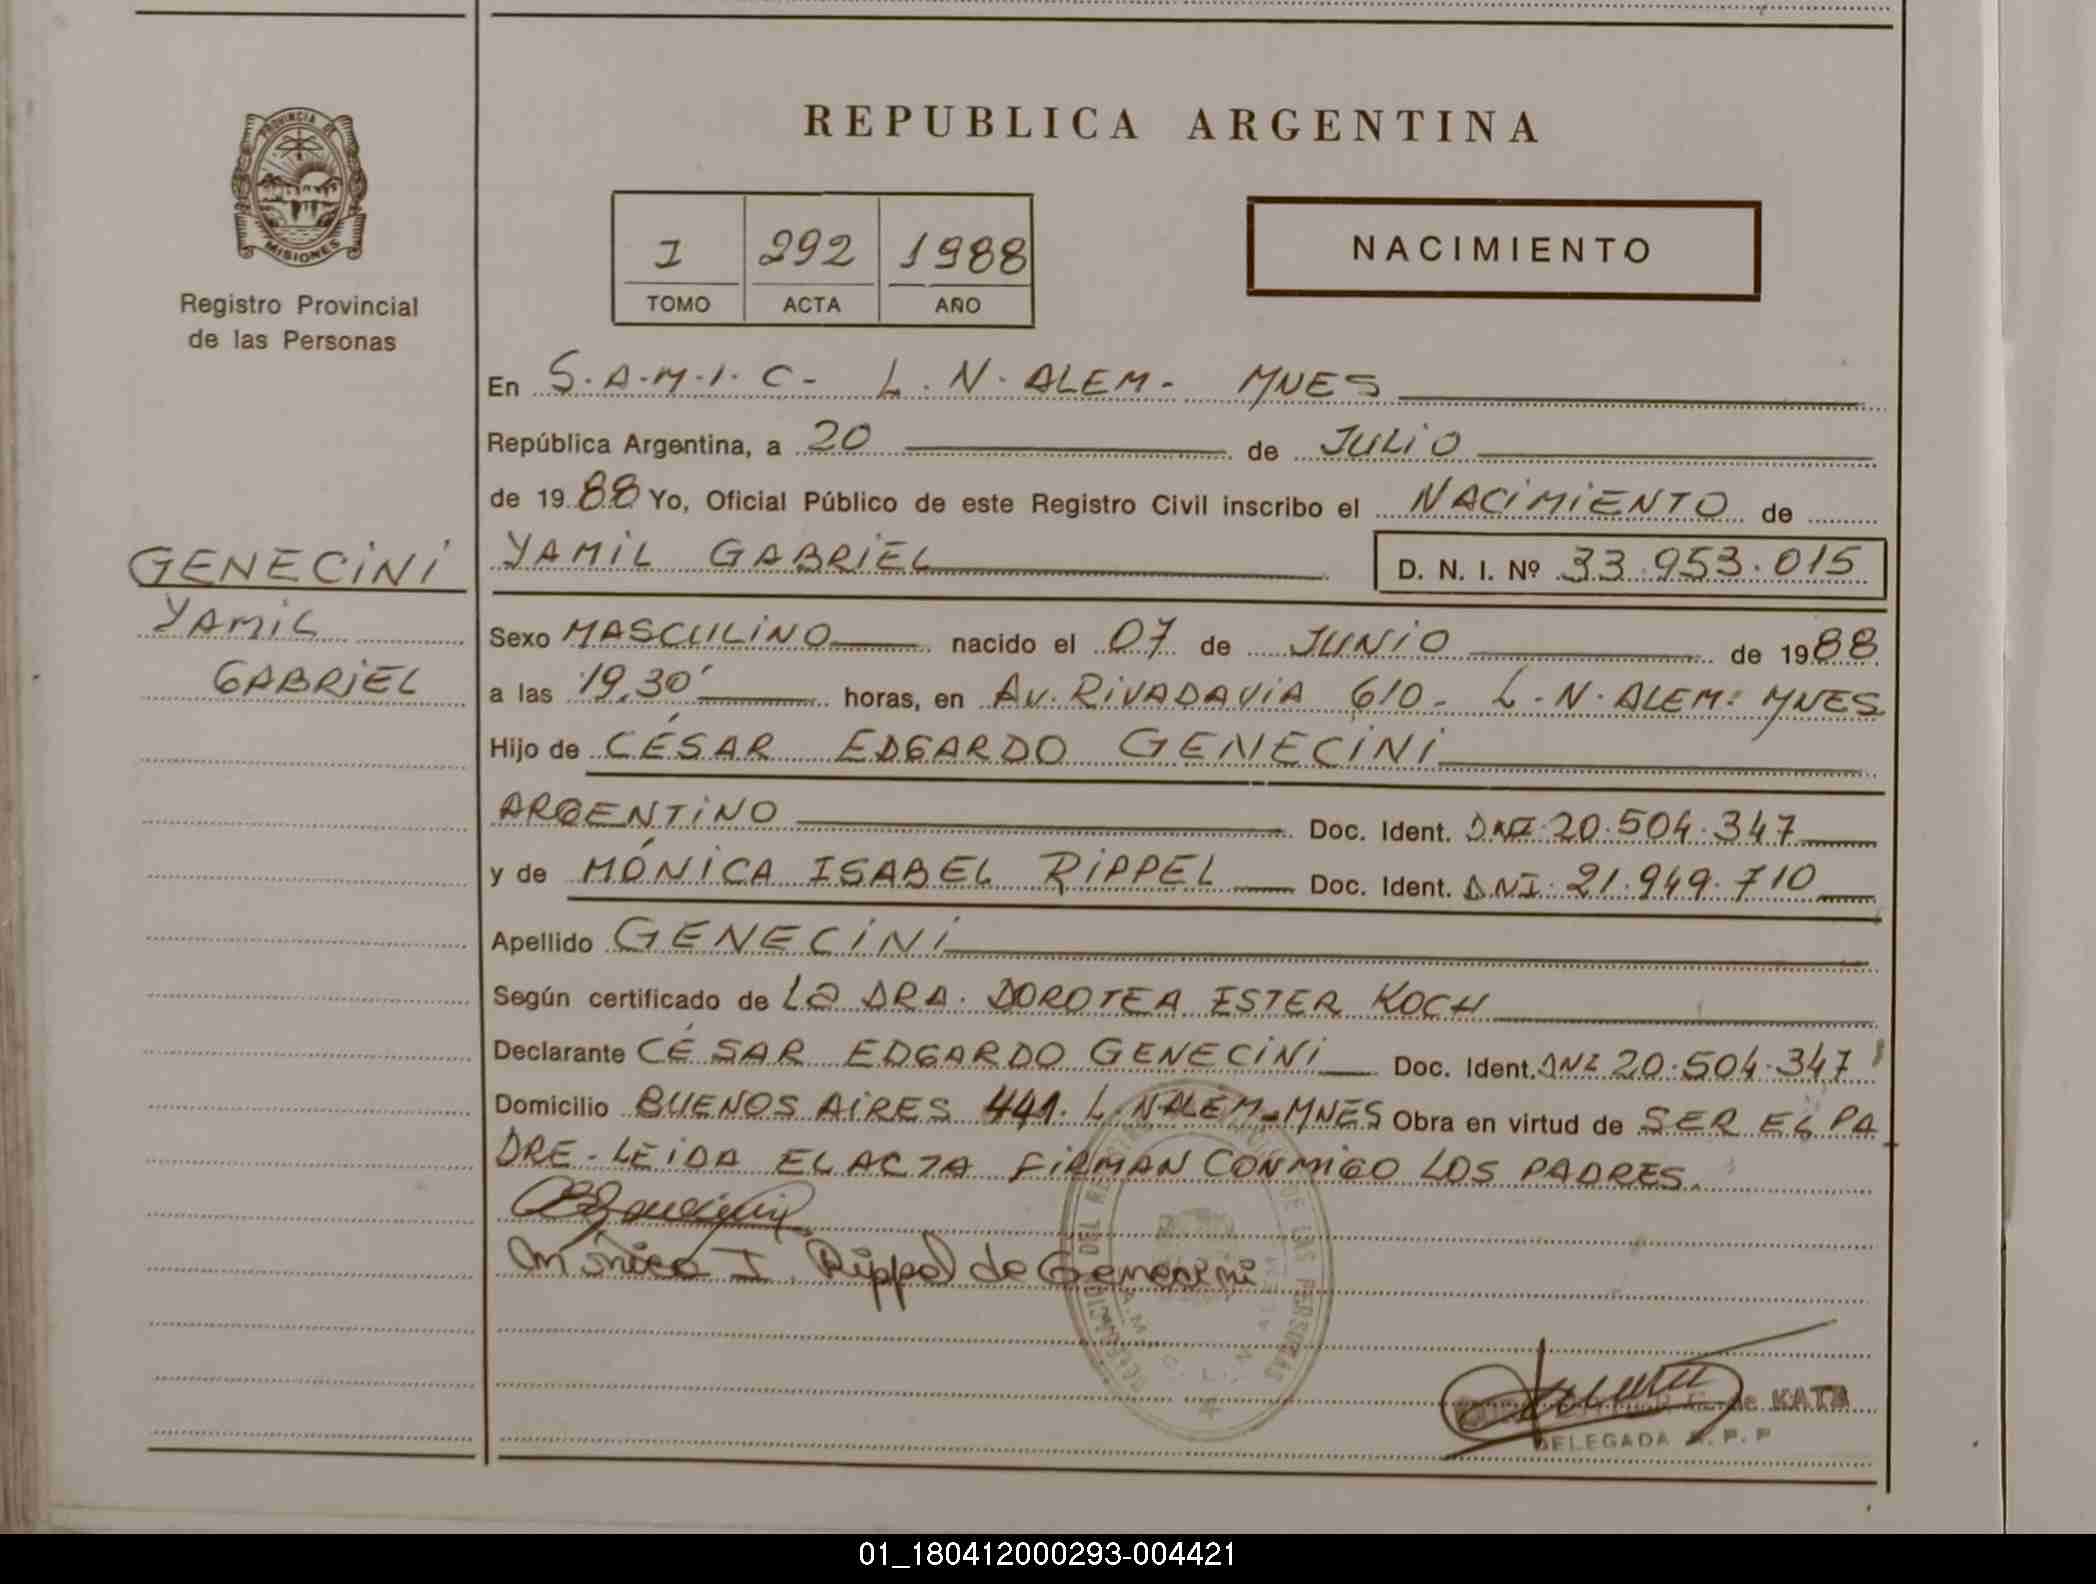 REPUBLICA ARGENTINA
PROVINCIA DE
MISIONES
Registro Provincial
de las Personas
I 292 1988
TOMO ACTA AÑO
NACIMIENTO
En S.A.M.I.C- L.N.ALEM- MNES
República Argentina, a 20 de JULIO
de 1988 Yo, Oficial Público de este Registro Civil inscribo el NACIMIENTO de
YAMIL GABRIEL D. N. I. Nº 33.953.015
GENECINI
YAMIL
GABRIEL
Sexo MASCULINO nacido el 07 de JUNIO de 1988
a las 19,30' horas, en AV. RIVADAVIA 610- L.N.ALEM- MNES
Hijo de CÉSAR EDGARDO GENECINI
ARGENTINO Doc. Ident. DNI.20.504.347
y de MÓNICA ISABEL RIPPEL Doc. Ident. DNI.21.949.710
Apellido GENECINI
Según certificado de La DRA. DOROTEA ESTER KOCH
Declarante CÉSAR EDGARDO GENECINI Doc. Ident. DNI 20.504.347
Domicilio BUENOS AIRES 441. L.N.ALEM-MNES Obra en virtud de SER EL PA
DRE-LEIDA EL ACTA FIRMAN CONMIGO LOS PADRES.
Mónica I. Rippel de Genecini
DE LAS PERSONAS
de KATZ
DELEGADA R.P.P
01_180412000293-004421